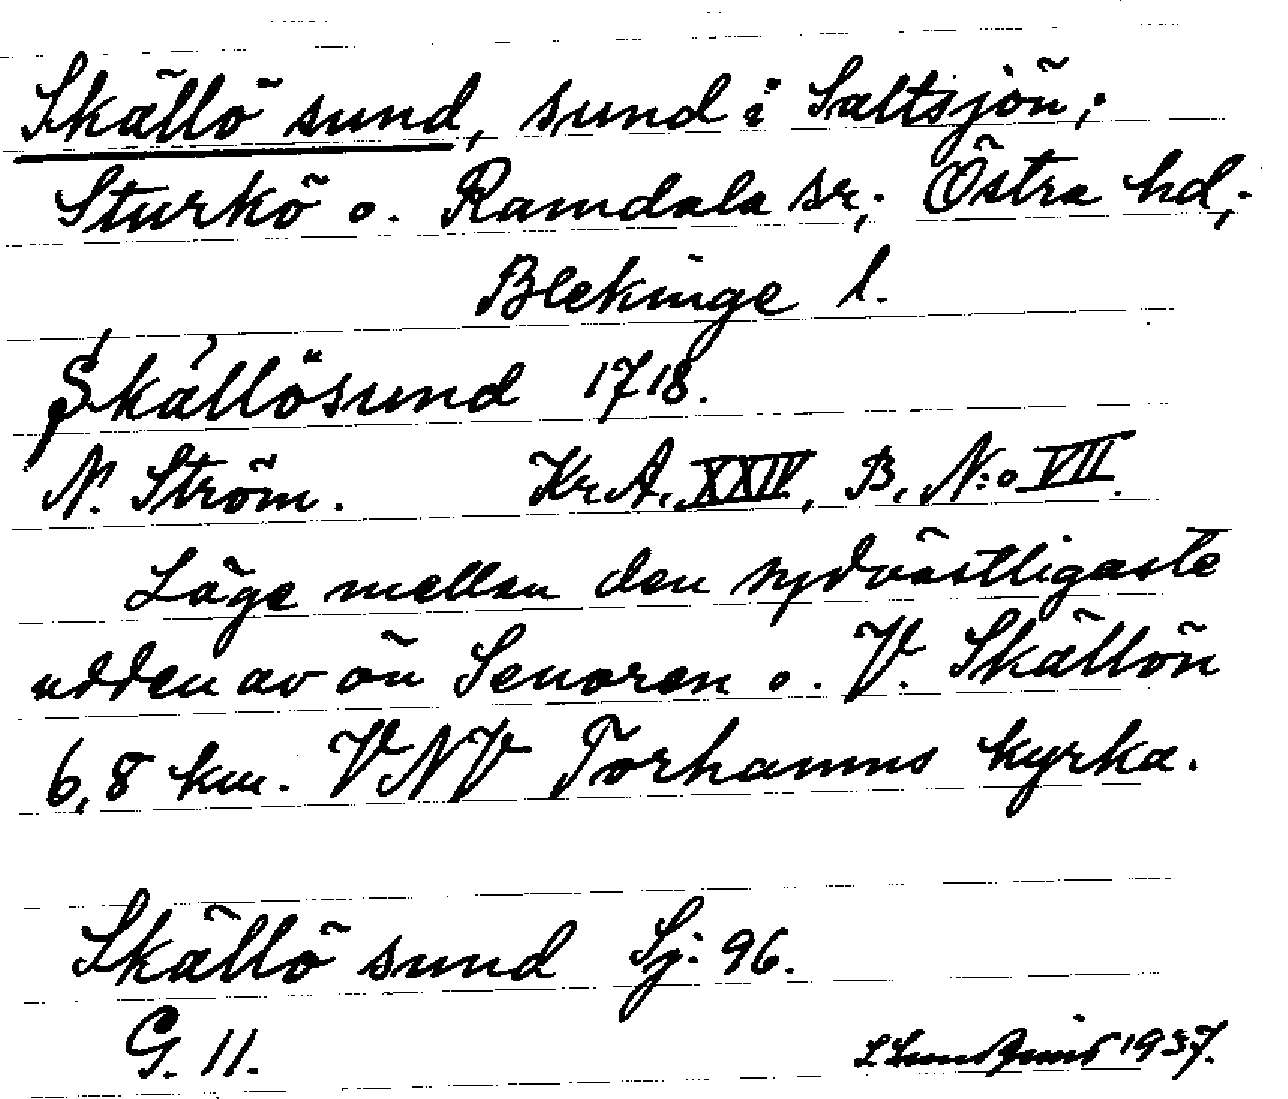 Skällö sund, sund i Saltsjön;
Sturkö o. Ramdala sr,; Östra hd,;
Blekinge l.
Skällösund 1718.
N. Ström. Kr. A. XXIV, B, N:o VII.
Läge mellan den sydvästligaste
udden av ön Senoren o. V. Skällön
6,8 km. VNV Torhamns kyrka.
Skällö sund Sj: 96.
G. 11.
1937.